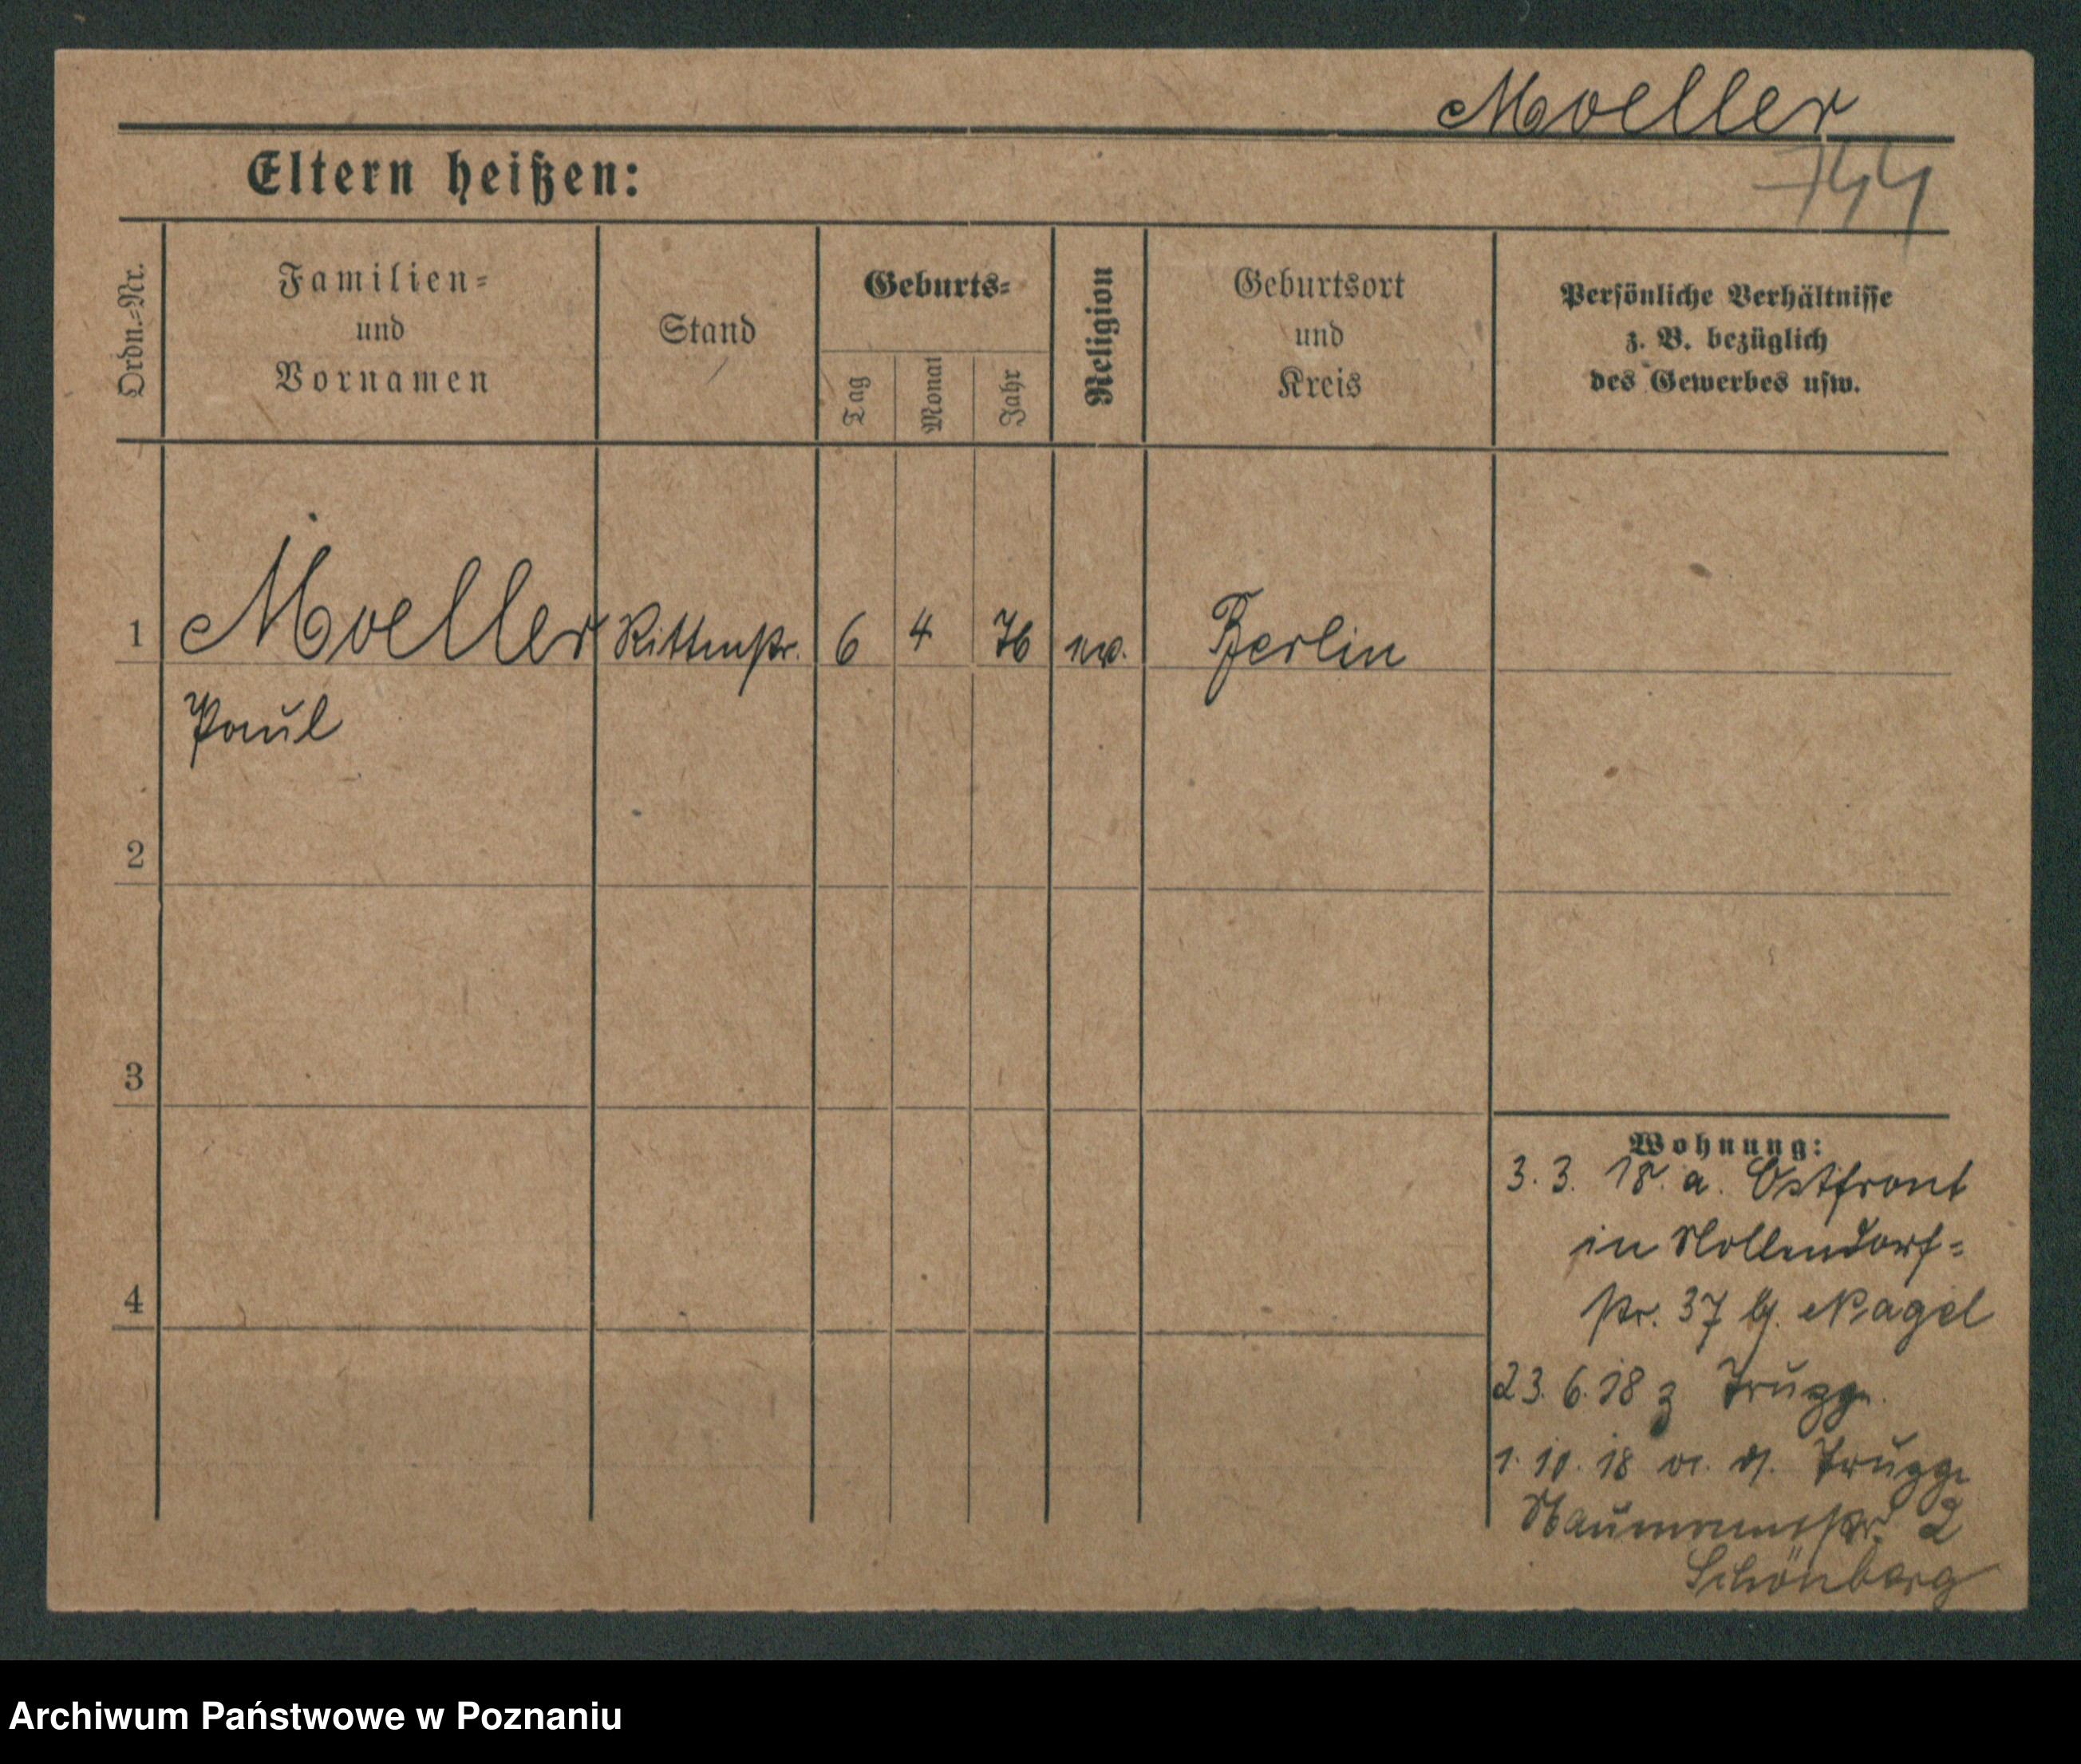 Moeller
744
Eltern heißen:
Ordn.-Nr.
Familien-
und
Vornamen
Stand
Geburts-
Tag
Monat
Jahr
Religion
Geburtsort
und
Kreis
Persönliche Verhältnisse
z. B. bezüglich
des Gewerbes usw.
1 Moeller 6 4 76 ev. Berlin
Paul
2
3
4
Wohnung:
3. 3. 18. a. Ostfront
in Nollendorf-
str. 37 b. Nagel
23. 6. 18 z
1. 10. 18
Naumannstr. 2
Schönberg
Archiwum Państwowe w Poznaniu